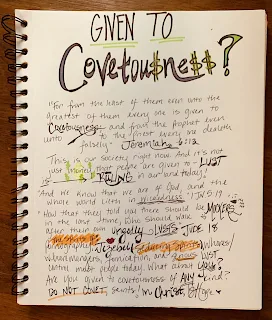 GIVEN TO
Covetou$ne$$?
"For from the least of them even unto the
greatest of them every one is given to
Covetousness and from the prophet even
unto to the priest every one dealeth
falsely" Jeremiah 6:13
This is our society right now. And it's not
just that people are given to - LUST
IS RULING in our land today!
"And we know that we are of God and the
whole world lieth in wickedness" 1 JN 5:19
"How that they told you there should be MOCKERS
in the last time, who should walk
after their own ungodly LUSTS" JUDE 18
The spirits of
pornography, Jezebel, seducing spirits, whores/
whoremongers, fornication, and
control most people today. What about you?
Are you given to covetousness of ANY kind?
DO NOT COVET, saints! In Christ,